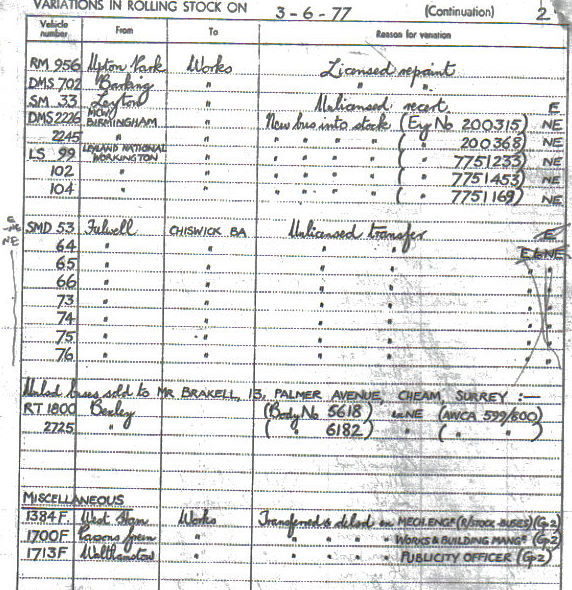 VARIATIONS IN ROLLING STOCK ON 3-6-77 (Continuation) 2
Vehicle number From To Reason for variation
RM 956 Upton Park Works Licensed repaint
DMS 702 Barking " " "
SM 33 Leyton " Unlicensed recert. E
DMS 2226 MCW BIRMINGHAM " New bus into stock (Eng No 200315) NE
2245 " " " " " " ( " 200368) NE
LS 99 LEYLAND NATIONAL WORKINGTON " " " " " ( " 7751233) NE
102 " " " " " ( " 7751453) NE
104 " " " " " ( " 7751169) NE
E
NE
NE
SMD 53 Fulwell CHISWICK BA Unlicensed transfer E
64 " " " " E & NE
65 " " " " " "
66 " " " " " "
73 " " " " " "
74 " " " " " "
75 " " " " " "
76 " " " " " "
Unlsd buses sold to MR BRAKELL, 13, PALMER AVENUE, CHEAM, SURREY :—
RT 1800 Bexley (Body No 5618) NE (AWCA 599/600)
2725 " ( " 6182) " ( " " )
MISCELLANEOUS
1384F West Ham Works Transferred & delsd on MECH. ENGR (R/STOCK-BUSES) (Gp2)
1700F Parsons Green " " " " WORKS & BUILDING MANGR (Gp2)
1713F Walthamstow " " " " PUBLICITY OFFICER (Gp2)